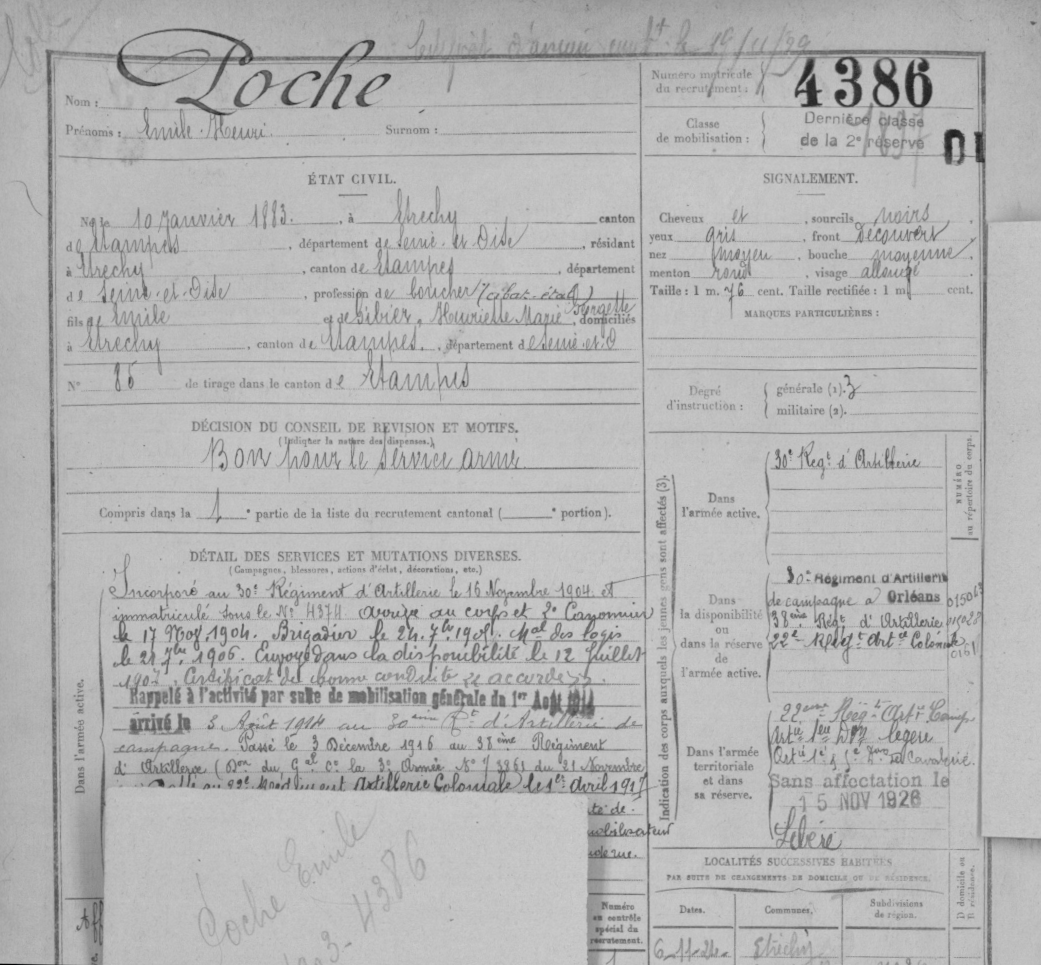 le 19/11/29
Nom : Poche
Prénoms : Emile Henri Surnom :
Numéro matricule du recrutement : 4386
Classe de mobilisation : Dernière classe de la 2e réserve
ÉTAT CIVIL.
Né le 10 Janvier 1883, à Etrechy canton
de Etampes, département de Seine-et-Oise, résidant
à Etrechy, canton de Etampes, département
de Seine-et-Oise, profession de boucher
fils de Emile et de Sibier, Henriette Marie Georgette, domiciliés
à Etrechy, canton de Etampes, département de Seine-et-O
N° 85 de tirage dans le canton de Etampes
SIGNALEMENT.
Cheveux et , sourcils noirs
yeux gris , front Découvert
nez moyen , bouche moyenne
menton rond , visage allongé
Taille : 1 m. 76 cent. Taille rectifiée : 1 m. cent.
MARQUES PARTICULIÈRES :
Degré d'instruction :
générale (1). 3
militaire (2).
DÉCISION DU CONSEIL DE REVISION ET MOTIFS.
(Indiquer la nature des dispenses.)
Bon pour le service armé
Compris dans la 1 e partie de la liste du recrutement cantonal ( e portion).
DÉTAIL DES SERVICES ET MUTATIONS DIVERSES.
(Campagnes, blessures, actions d'éclat, décorations, etc.)
Dans l'armée active.
Incorporé au 30e Régiment d'Artillerie le 16 Novembre 1904 et
immatriculé sous le N° 4374. Arrivé au corps et 2e Canonnier
le 17 Nov. 1904. Brigadier le 24 7bre 1905. Mal des logis
le 21 7bre 1906. Envoyé dans la disponibilité le 12 Juillet
1907. Certificat de bonne conduite accordé.
Rappelé à l'activité par suite de mobilisation générale du 1er Août 1914
arrivé le 3 Août 1914 au 30ème Rt d'Artillerie de
campagne. Passé le 3 Décembre 1916 au 38ème Régiment
d'Artillerie (Don du Gal Ct la 3e Armée N° 3361 du 21 Novembre
Artillerie Coloniale le 1er Avril 1917
Poche Emile
4386
Indication des corps auxquels les jeunes gens sont affectés (3).
NUMÉRO au répertoire du corps.
Dans l'armée active.
30e Regt d'Artillerie
Dans la disponibilité ou dans la réserve de l'armée active.
30e Régiment d'Artillerie
de campagne à Orléans
38ème Régt d'Artillerie
22e Régt Art ie Coloniale
Dans l'armée territoriale et dans sa réserve.
22ème Régt Art Camp
Sans affectation le
15 NOV 1926
Libéré
LOCALITÉS SUCCESSIVES HABITÉES
PAR SUITE DE CHANGEMENTS DE DOMICILE OU DE RÉSIDENCE.
Dates. Communes. Subdivisions de région. D domicile ou R résidence.
Etréchy
Numéro au contrôle spécial du recrutement.